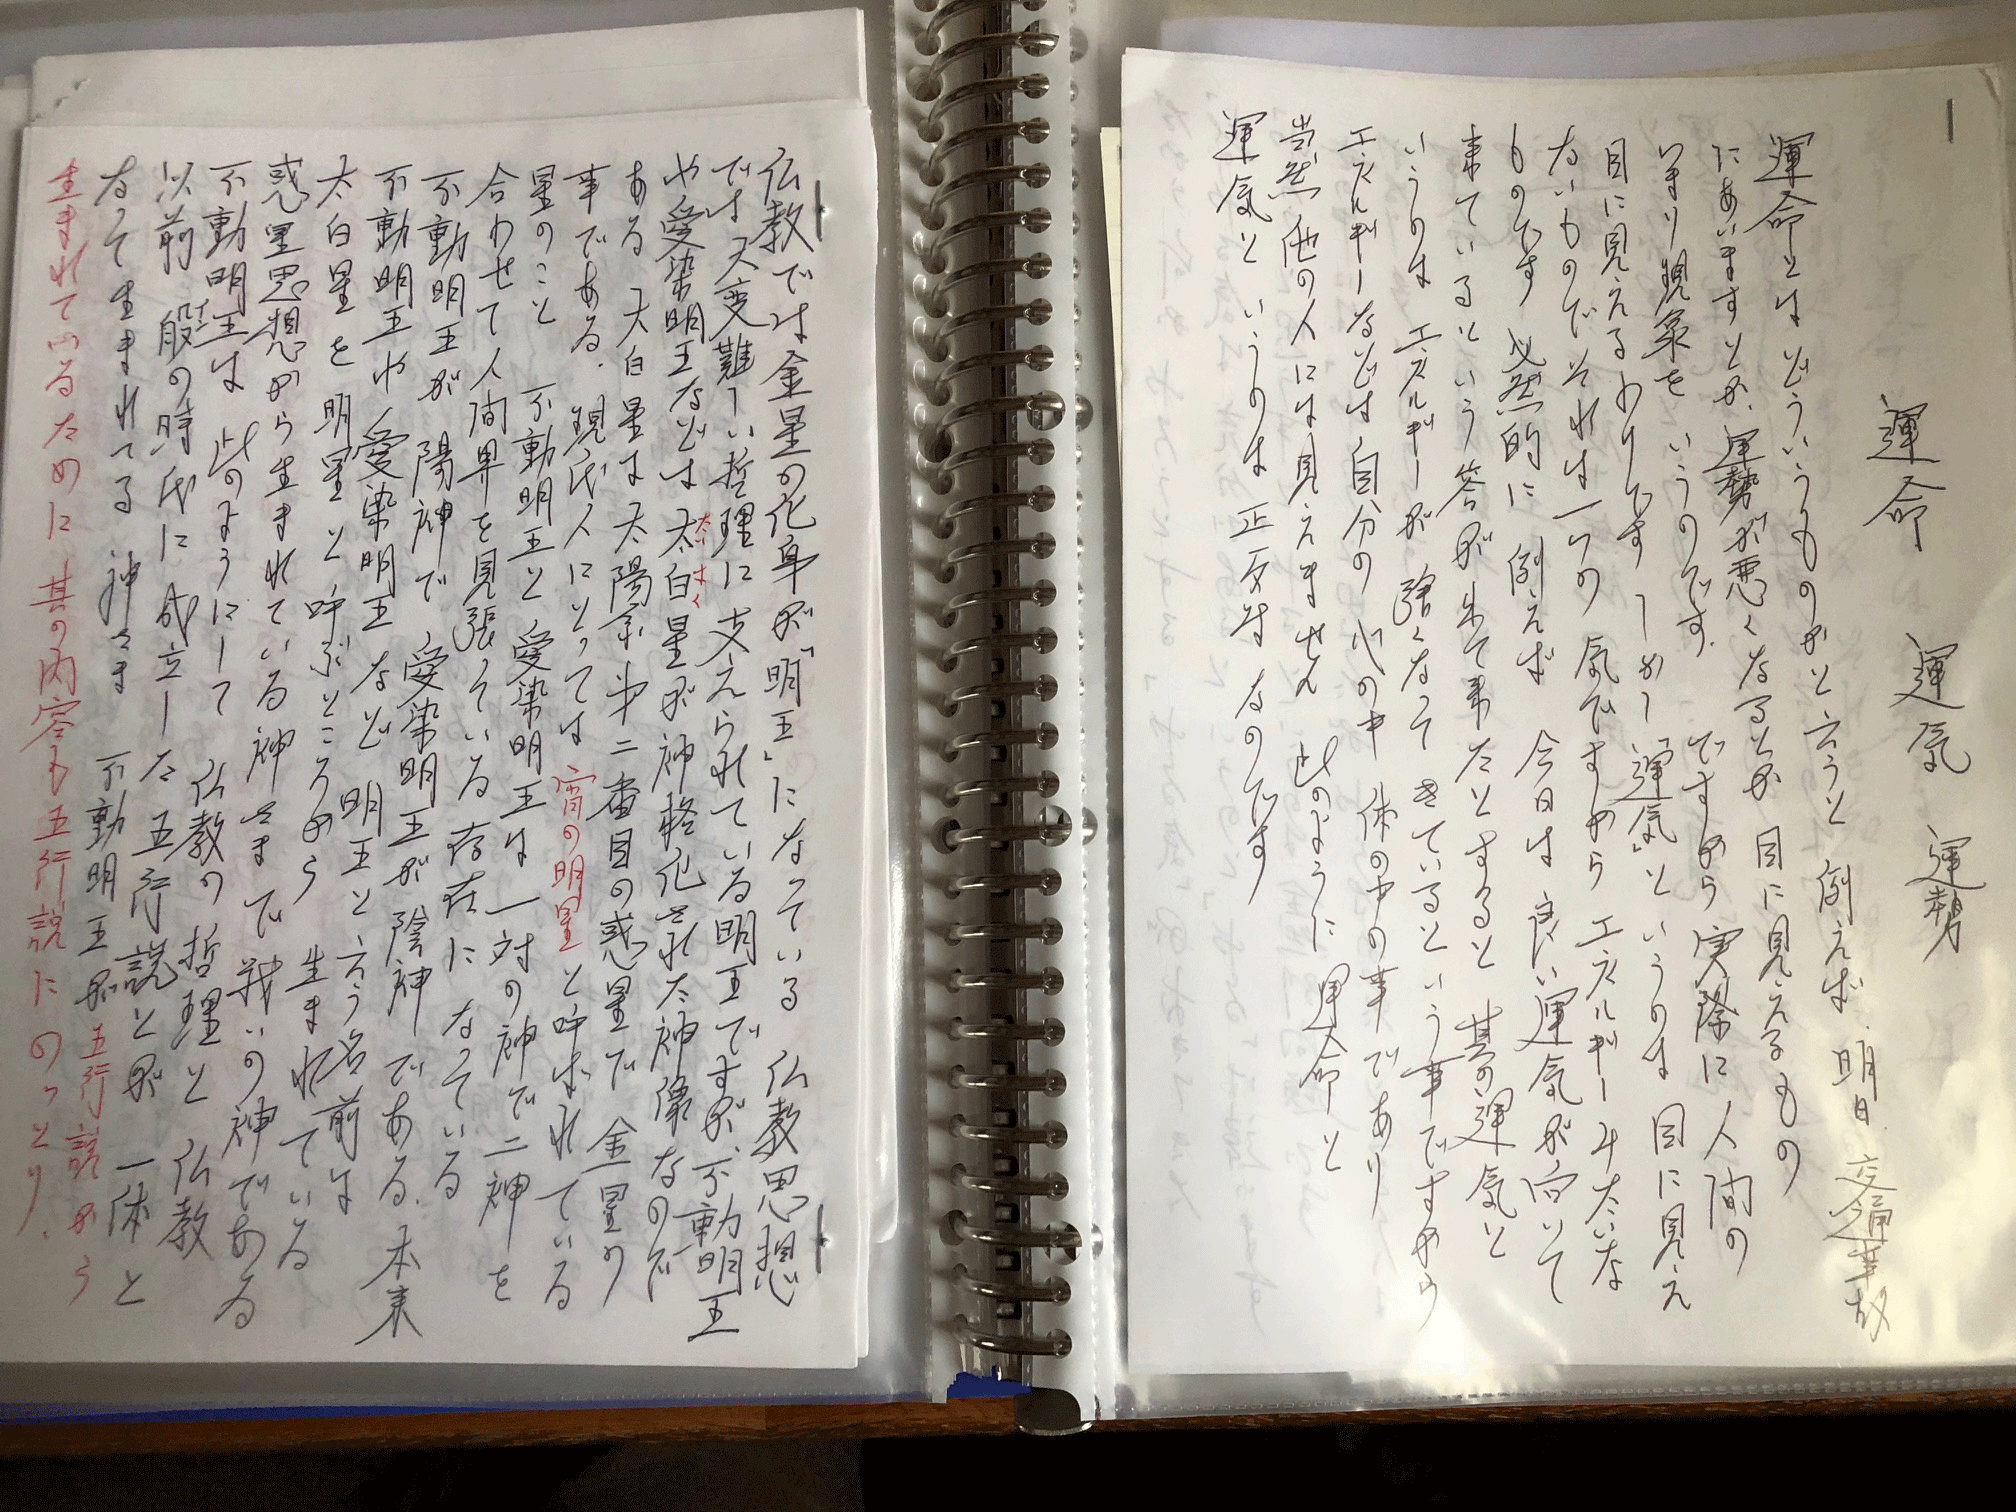 運命 運気 運勢
運命とはどういうものかと云うと 例えば 明日 交通事故
にあいますとか、運勢が悪くなるとか 目に見えるもの
つまり現象を いうのです。 ですから実際に人間の
目に見えるわけです しかし「運気」というのは 目に見え
ないものでそれは一つの 気ですから エネルギーみたいな
ものです 必然的に 例えば 今日は 良い運気が向いて
来ているという答が出て来たとすると 其の運気と
いうのは エネルギーが 強くなって きているという事ですから
エネルギーなどは 自分の 心の中 体の中の事であり
当然 他の人には見えません 此のように 運命と
運気と いうのは 正反対 なのです
仏教では金星の化身が「明王」になっている 仏教思想
では 大変難しい哲理に支えられている明王ですが、不動明王
や愛染明王などは太白星が神格化された神像なので
たい はく
ある 太白星は太陽系第二番目の惑星で 金星の
事である. 現代人にとっては 宵の明星 と呼ばれている
星のこと 不動明王と愛染明王は一対の神で二神を
合わせて人間界を見張っている 存在に なっている
不動明王が 陽神で 愛染明王が陰神 である. 本来
不動明王や愛染明王 など 明王と云う名前は
太白星を 明星と 呼ぶところから 生まれている
惑星思想から生まれている神さまで 戦いの神である
不動明王は 此のようにして 仏教の哲理と 仏教
以前 殷の時代に成立した五行説とが 一体と
イン
なって生まれてる 神さま 不動明王が 五行説から
生まれているために 其の内容も五行説にのっとり.